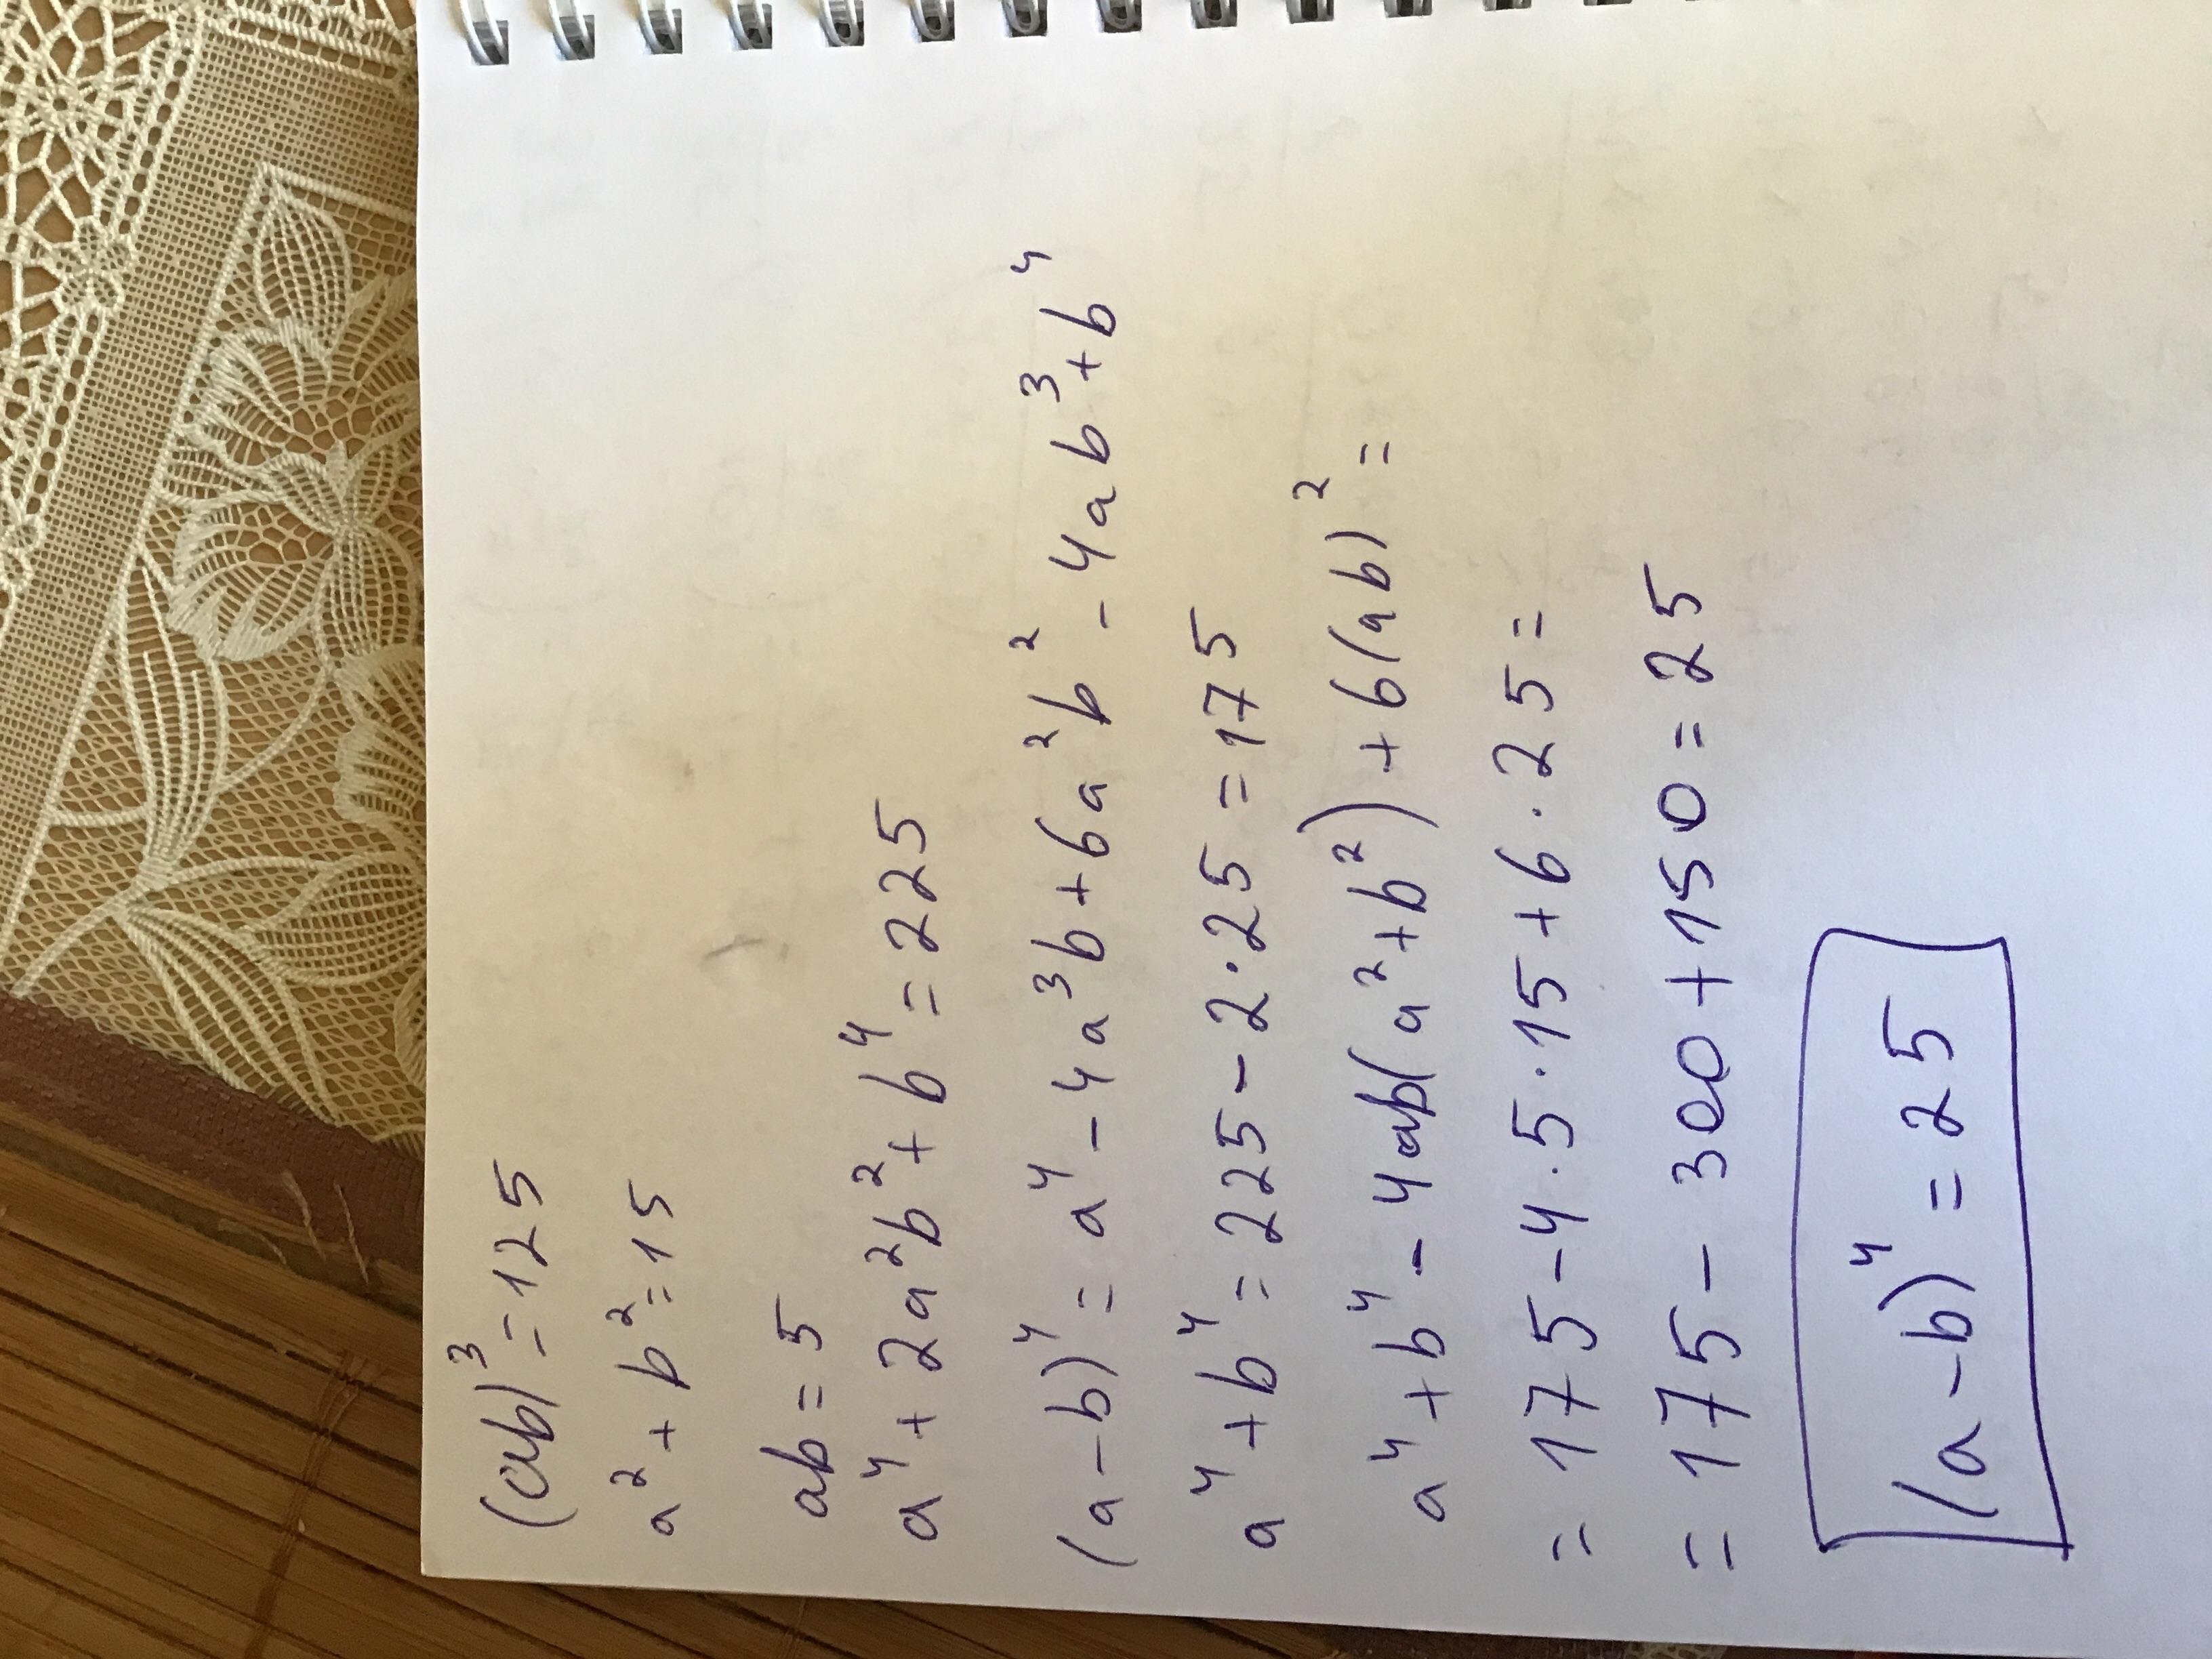 (ab)³ = 125
a² + b² = 15
ab = 5
a⁴ + 2a²b² + b⁴ = 225
(a-b)⁴ = a⁴ - 4a³b + 6a²b² - 4ab³ + b⁴
a⁴ + b⁴ = 225 - 2·25 = 175
a⁴ + b⁴ - 4ab(a² + b²) + 6(ab)² =
= 175 - 4·5·15 + 6·25 =
= 175 - 300 + 150 = 25
(a-b)⁴ = 25